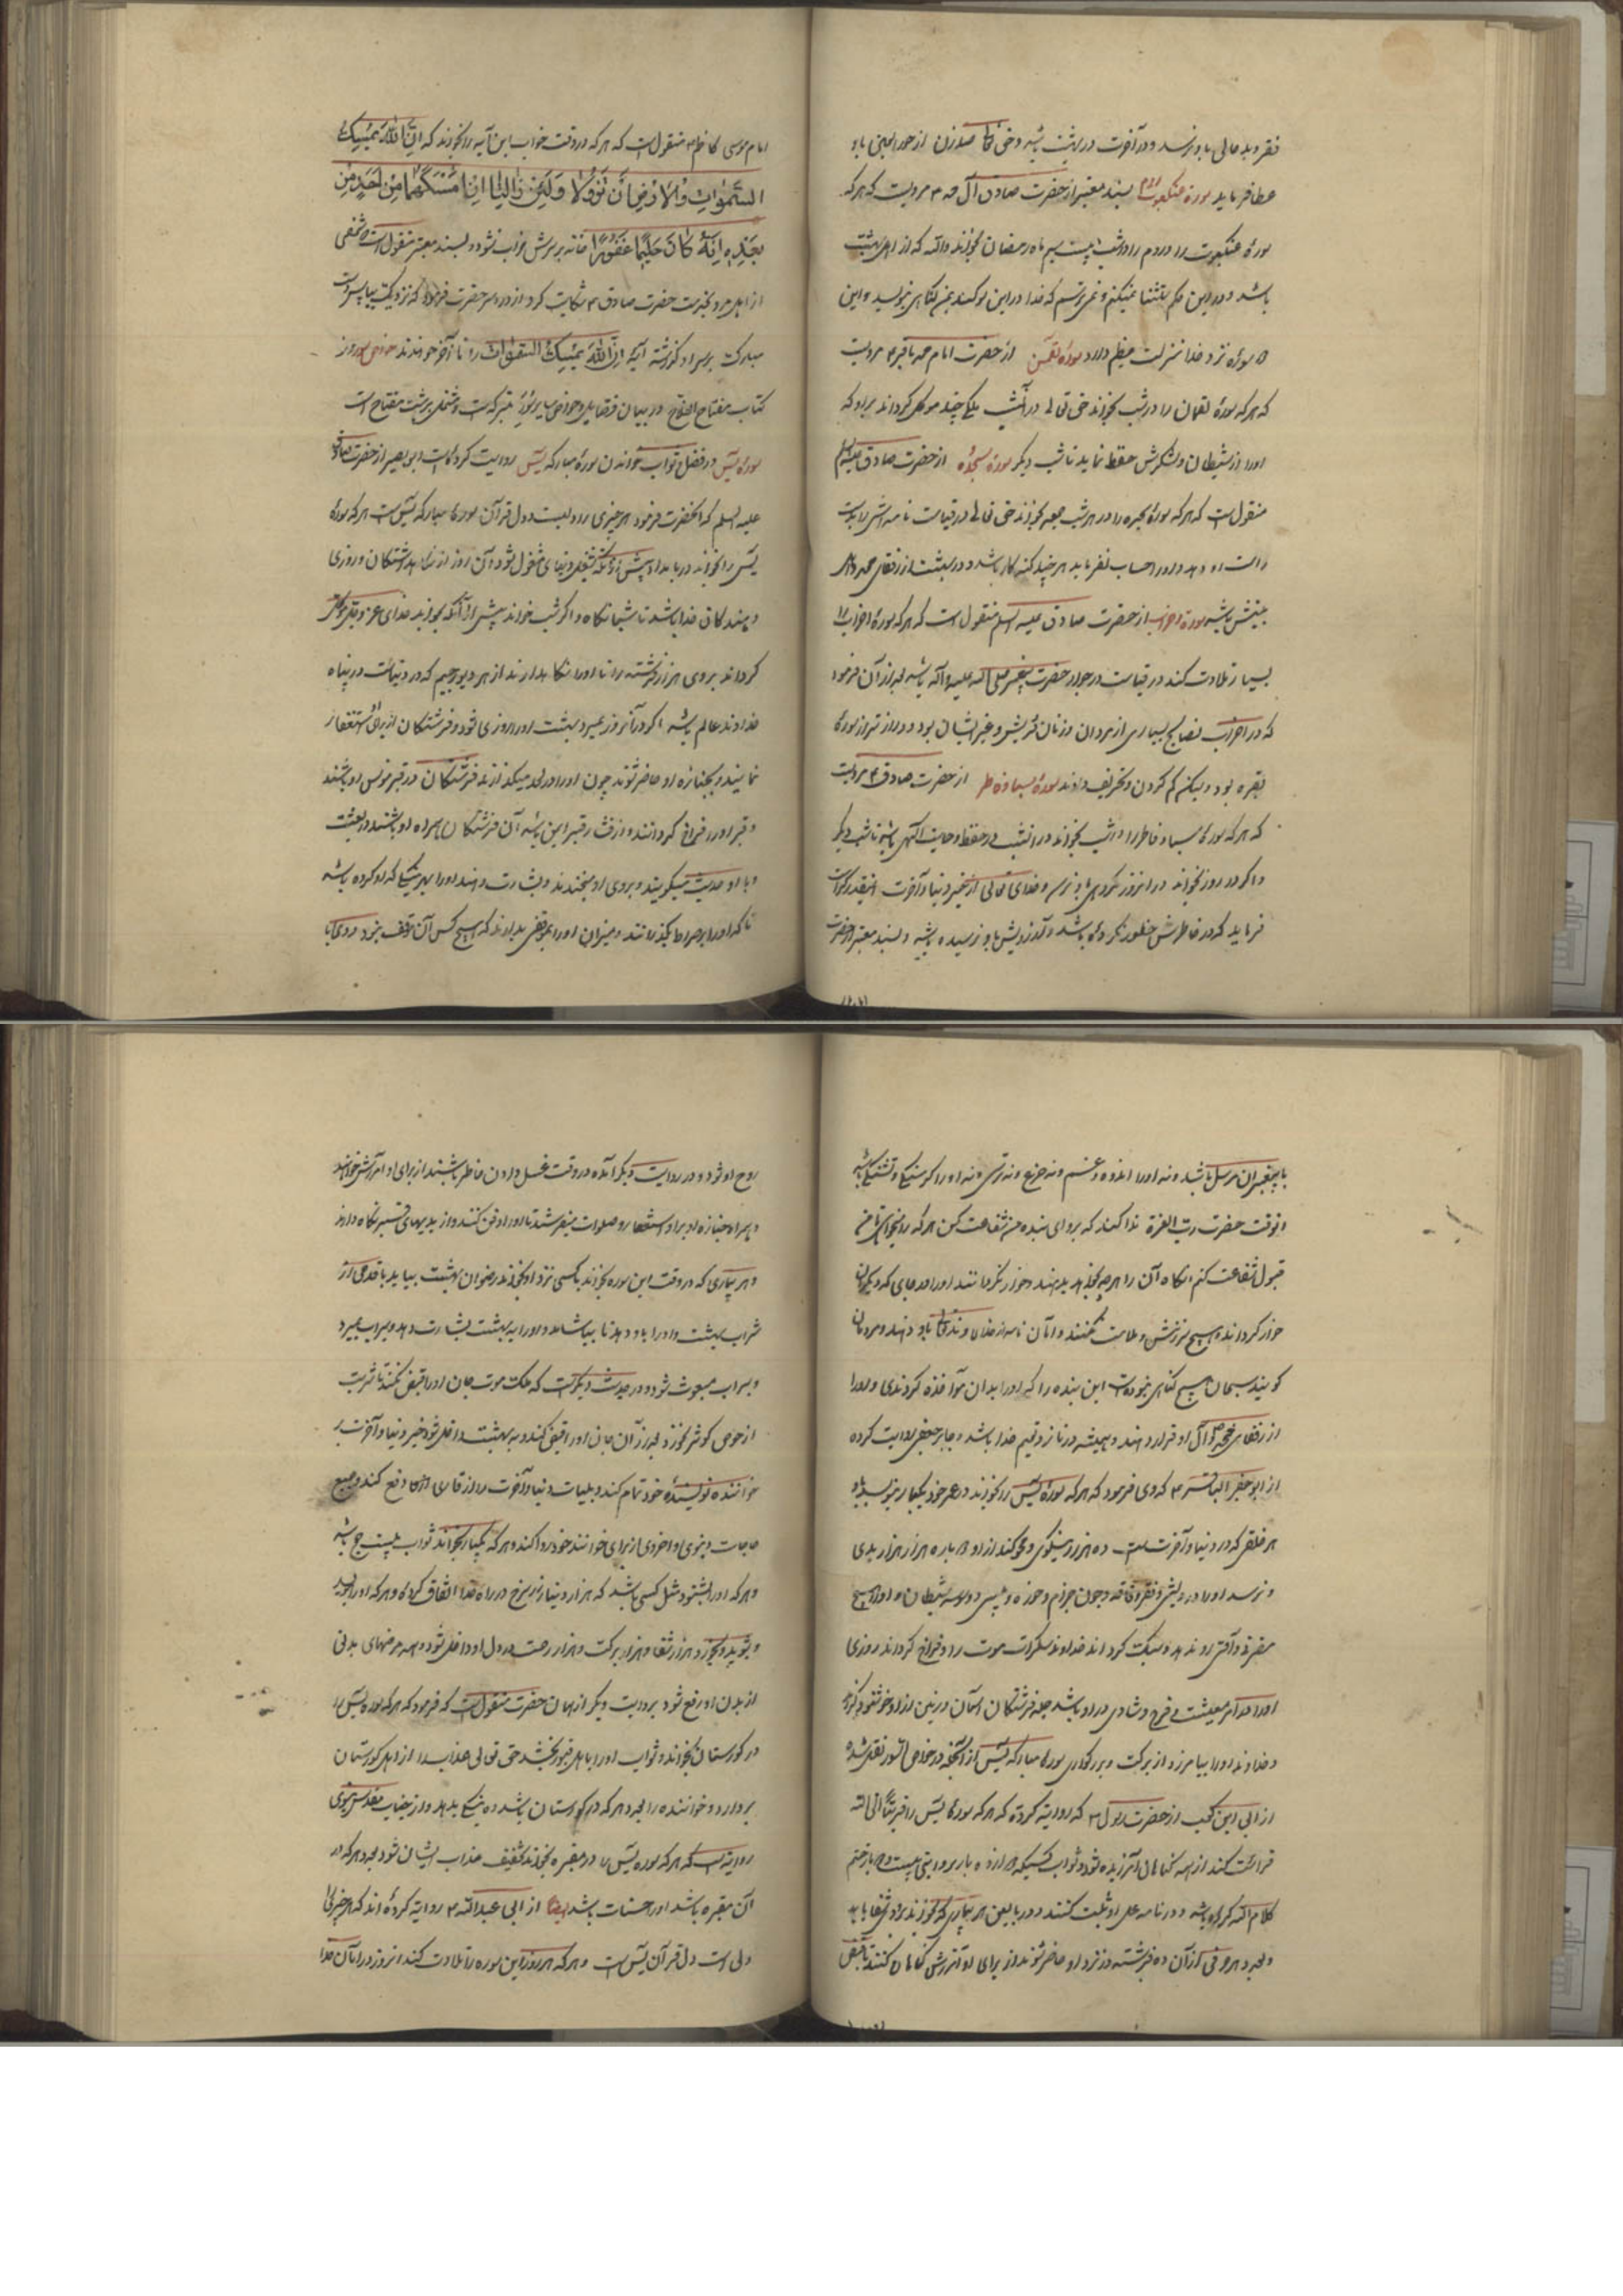 فقر و بد حالی باو نرسد و در آخرت در بهشت باشد و حق تعالی صد زن از حورالعین باو
عطا فرماید سوره عنکبوت بسند معتبر از حضرت صادق آل محمد ع مرویست که هرکه
سورۀ عنکبوت را و روم را در شب بیست سیم ماه رمضان بخواند والله که از اهل بهشت
باشد و در این حکم استثنا نمیکنم و نمیترسم که خدا در این سوکند بر من کناهی بنویسد و این
دو سوره نزد خدا منزلت عظیم دارد سورۀ لقمن از حضرت امام محمد باقر ع مرویست
که هر که سورۀ لقمان را در شب بخواند حق تعالی در آنشب ملکی چند موکل کرداند بر او که
او را از شیطان و لشکرش حفظ نماید تا شب دیکر سورۀ سجده از حضرت صادق علیه السلم
منقول است که هر که سورۀ سجده را در هر شب جمعه بخواند حق تعالی در قیامت نامه اش را بدست
راست او دهد و او را حساب نفرماید هر چند کنه کار باشد و در بهشت از رفقای محمد و آل
بیتش باشد سورۀ احزاب از حضرت صادق علیه السلم منقول است که هر که سورۀ احزاب را
بسیار تلاوت کند در قیامت در جوار حضرت پیغمبر صلی الله علیه و آله باشد بعد از آن فرمود
که در احزاب فضایح بسیاری از مردان و زنان قریش و غیر ایشان بود و دراز تر از سورۀ
بقره بود ولیکن کم کردن و تحریف دادند سورۀ سبا و فاطر از حضرت صادق ع مرویست
که هر که سورۀ سبا و فاطر را در شب بخواند در آنشب در حفظ و حمایت الهی باشد تا شب دیکر
و اکر در روز بخواند در آنروز مکروهی باو نرسد و خدای تعالی از خیر دنیا و آخرت آنقدر کرامت
فرماید که در خاطرش خطور نکرده باشد و آرزویش باو نرسیده باشد و بسند معتبر از حضرت
امام موسی کاظم ع منقول است که هر که در وقت خواب این آیه را بخواند که اِنَّ اللهَ یُمْسِكُ
السَّمٰوٰاتِ وَالْاَرْضَ اَنْ تَزُولٰا وَلَئِنْ زٰالَتٰا اِنْ اَمْسَکَهُمٰا مِنْ اَحَدٍ مِنْ
بَعْدِهِ اِنَّهُ کٰانَ حَلِیمًا غَفُورًا خانه بر سرش خراب نشود و بسند معتبر منقول است شخصی
از اهل مرو بخدمت حضرت صادق ع شکایت کرد از درد سر حضرت فرمود که نزدیک بیا پس دست
مبارک بر سر او کذشته آیه اِنَّ اللهَ یُمْسِكُ السَّمٰوٰاتِ را تا آخر خواندند
کتاب مفتاح الفلاح در بیان فضایل و خواص سایر سور متبرکه است و مشتمل بر شست مفتاح است
سورۀ یس در فضل ثواب خواندن سورۀ مبارکه یس روایت کرده است ابو بصیر از حضرت صادق
علیه السلم که آنحضرت فرمود هر چیزی را دلیست و دل قرآن سورۀ مبارکه یس است هر که سورۀ
یس را بخواند در بامداد پیش از آنکه بشغل دنیای مشغول شود آن روز از نکاهداشتکان و روزی
دهند کان خدا باشد تا شبانکاه و اکر شب خواند پیش از آنکه بخوابد خدای عز و جل موکل
کرداند بر وی هزار فرشته را تا او را نکاه بدارند از هر دیو رجیم که در دنیاست در پناه
خداوند عالم باشد و اکر در آنروز بمیرد بهشت او را روزی شود و فرشتکان از برای استغفار
نمایند و بجنازه او حاضر شوند چون او را در لحد میکذارند فرشتکان در قبر مونس او باشند
و قبر او را فراخ کردانند و از فشار قبر ایمن باشد آن فرشتکان همراه او باشند در بعثت
و با او حدیث میکویند و بروی او میخندند و بشارت دهند او را بهر نیکی که او کرده باشد
تا که او را بر صراط بکذرانند و میزان او را بموقفی بدارند که هیچ کس آن موقف نبود
با پیغمبران مرسل باشد و نه او را اندوه و غم و نه جزع و نه ترس و نه او را کرسنکی و تشنکی باشد
و بوقت حضرت رب العزة ندا کند که برو ای بنده من شفاعت کن هر که را میخواهی تا من
قبول شفاعت کنم آنکاه آن را هر چه بخواهد بدهند و خوار نکردانند او را در جای که دیکران
خوار کردانند و هیچ سرزنش و ملامت نکنند و آنان نامه از خداوند تعالی باو دهند و مردمان
کویند سبحان هیچ کناهی نبوده است این بنده را که او را بدان مواخذه کردندی و او را
از رفقای محمد ص و آل او قرار دهند و همیشه در ناز و نعیم خدا باشد و جابر جعفی روایت کرده
از ابو جعفر الباقر ع که وی فرمود که هر که سورۀ یس را بخواند در عمر خود یکبار بنویسد باو
هر خلقی که در دنیا و آخرت است ده هزار نیکوئی و محو کند از او دوباره هزار هزار بدی
و نرسد او را درویشی و فقر و فاقه و جنون جزام و خوره و پیسی و وسوسه شیطان و او را هیچ
مضرت و آفتی رو ندهد و سبک کرداند خداوند سکرات موت را و فراخ کرداند روزی
او را در آخر معیشت فرح و شادی در او باشد جمله فرشتکان آسمان و زمین از او خوشنود کردند
و خداوند او را بیامرزد از برکت و بزرکواری سورۀ مبارکه یس از آنچه در خواص السور نقل شده
از ابی ابن کعب از حضرت رسول ص که روایته کرده که هر که سورۀ یس را قربةً الی الله
قرائت کند از همه کناهان آمرزیده شود و ثواب کسیکه دوازده بار بروایتی بیست و دو بار ختم
کلام الله کرده باشد و در نامه عمل او ثبت کنند و در بالین هر بیماری که بخوانند بزودی شفا یابد
و بعدد هر حرفی از آن ده فرشته در نزد او حاضر شوند از برای او آمرزش کناهان کنند تا قبض
روح او شود و در روایت دیکر آمده در وقت غسل دادن حاضر باشند از برای او آمرزش خواهند
و همراه جنازه او بر او استغفار و صلوات میفرستند تا او را دفن کنند و از بدیهای قبر نکاه دارند
و هر بیماری که در وقت این سوره بخواند یا کسی نزد او بخواند رضوان بهشت بیاید با قدحی از
شراب بهشت و او را باو دهد تا بیاشامد و او را به بهشت بشارت دهد و سیراب بمیرد
و سیراب مبعوث شود و در حدیث دیکر است که ملک موت جان او را قبض نکند تا شربت
از حوض کوثر نخورد بعد از آن جان او را قبض کند و به بهشت داخل شود خیر دنیا و آخرت را
خواننده نویسندۀ خود تمام کند و بلیات دنیا و آخرت را از قاری خود دفع کند و جمیع
حاجات دنیوی و اخروی از برای خوانند خود روا کند و هر که یکبار بخواند ثواب بیست حج باشد
و هر که او را بشنود مثل کسی باشد که هزار دینار زر سرخ در راه خدا انفاق کرده و هر که او را بنویسد
و بشوید و بخورد و هزار شفا و هزار برکت و هزار رحمت در دل او داخل شود و همه مرضهای بدنی
از بدن او رفع شود بروایت دیکر از همان حضرت منقول است که فرمود که هر که سوره یس را
در کورستان بخواند و ثواب او را باهل قبور بخشد حق تعالی عذاب را از اهل کورستان
بردارد و خواننده را بعدد هر که در کورستان باشد ده نیکی بدهد و از جناب مقدس نبوی
روایته است که هر که سوره یس را در مقبره بخواند تخفیف عذاب ایشان شود بعدد هر که در
آن مقبره باشد او را حسنات باشد ایضا از ابی عبدالله ع روایته کرده اند که هر چیز را
دلی است دل قرآن یس است و هر که هر روز این سوره را تلاوت کند آنروز در امان خدا